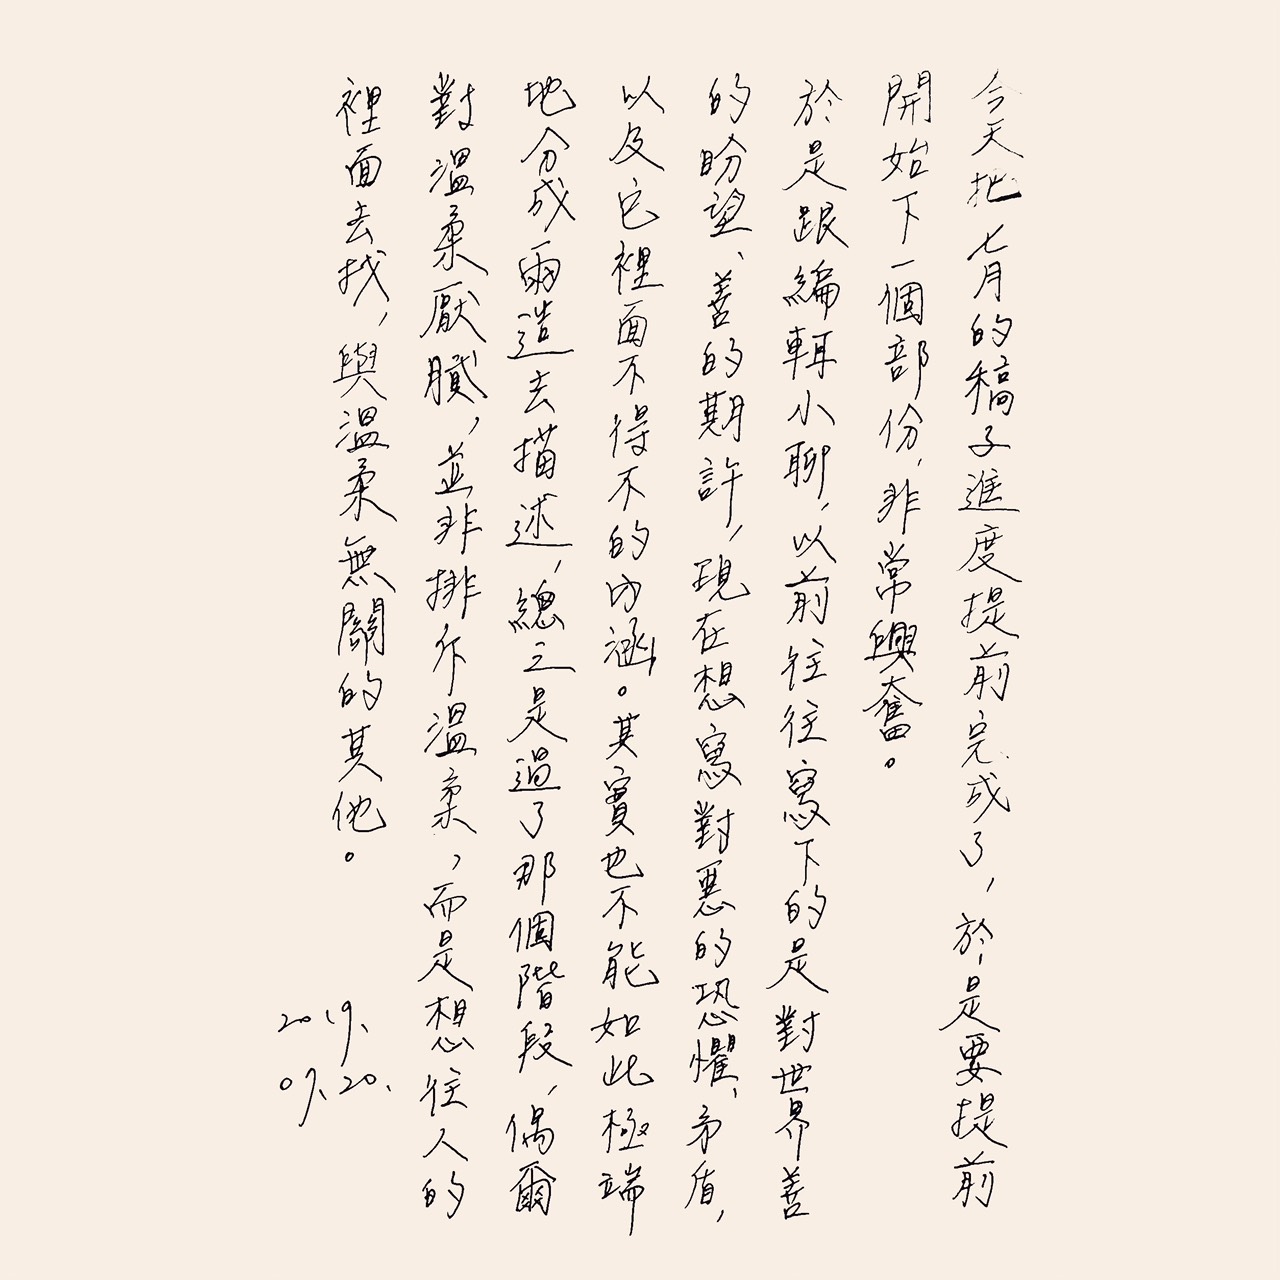 今天把七月的稿子進度提前完成了，於是要提前
開始下一個部份，非常興奮。
於是跟編輯小聊，以前往往寫下的是對世界善
的盼望、善的期許，現在想寫對惡的恐懼、矛盾，
以及它裡面不得不的內涵。其實也不能如此極端
地分成兩造去描述，總之是過了那個階段，偶爾
對溫柔厭膩，並非排斥溫柔，而是想往人的
裡面去找，與溫柔無關的其他。
2019.
07.20.